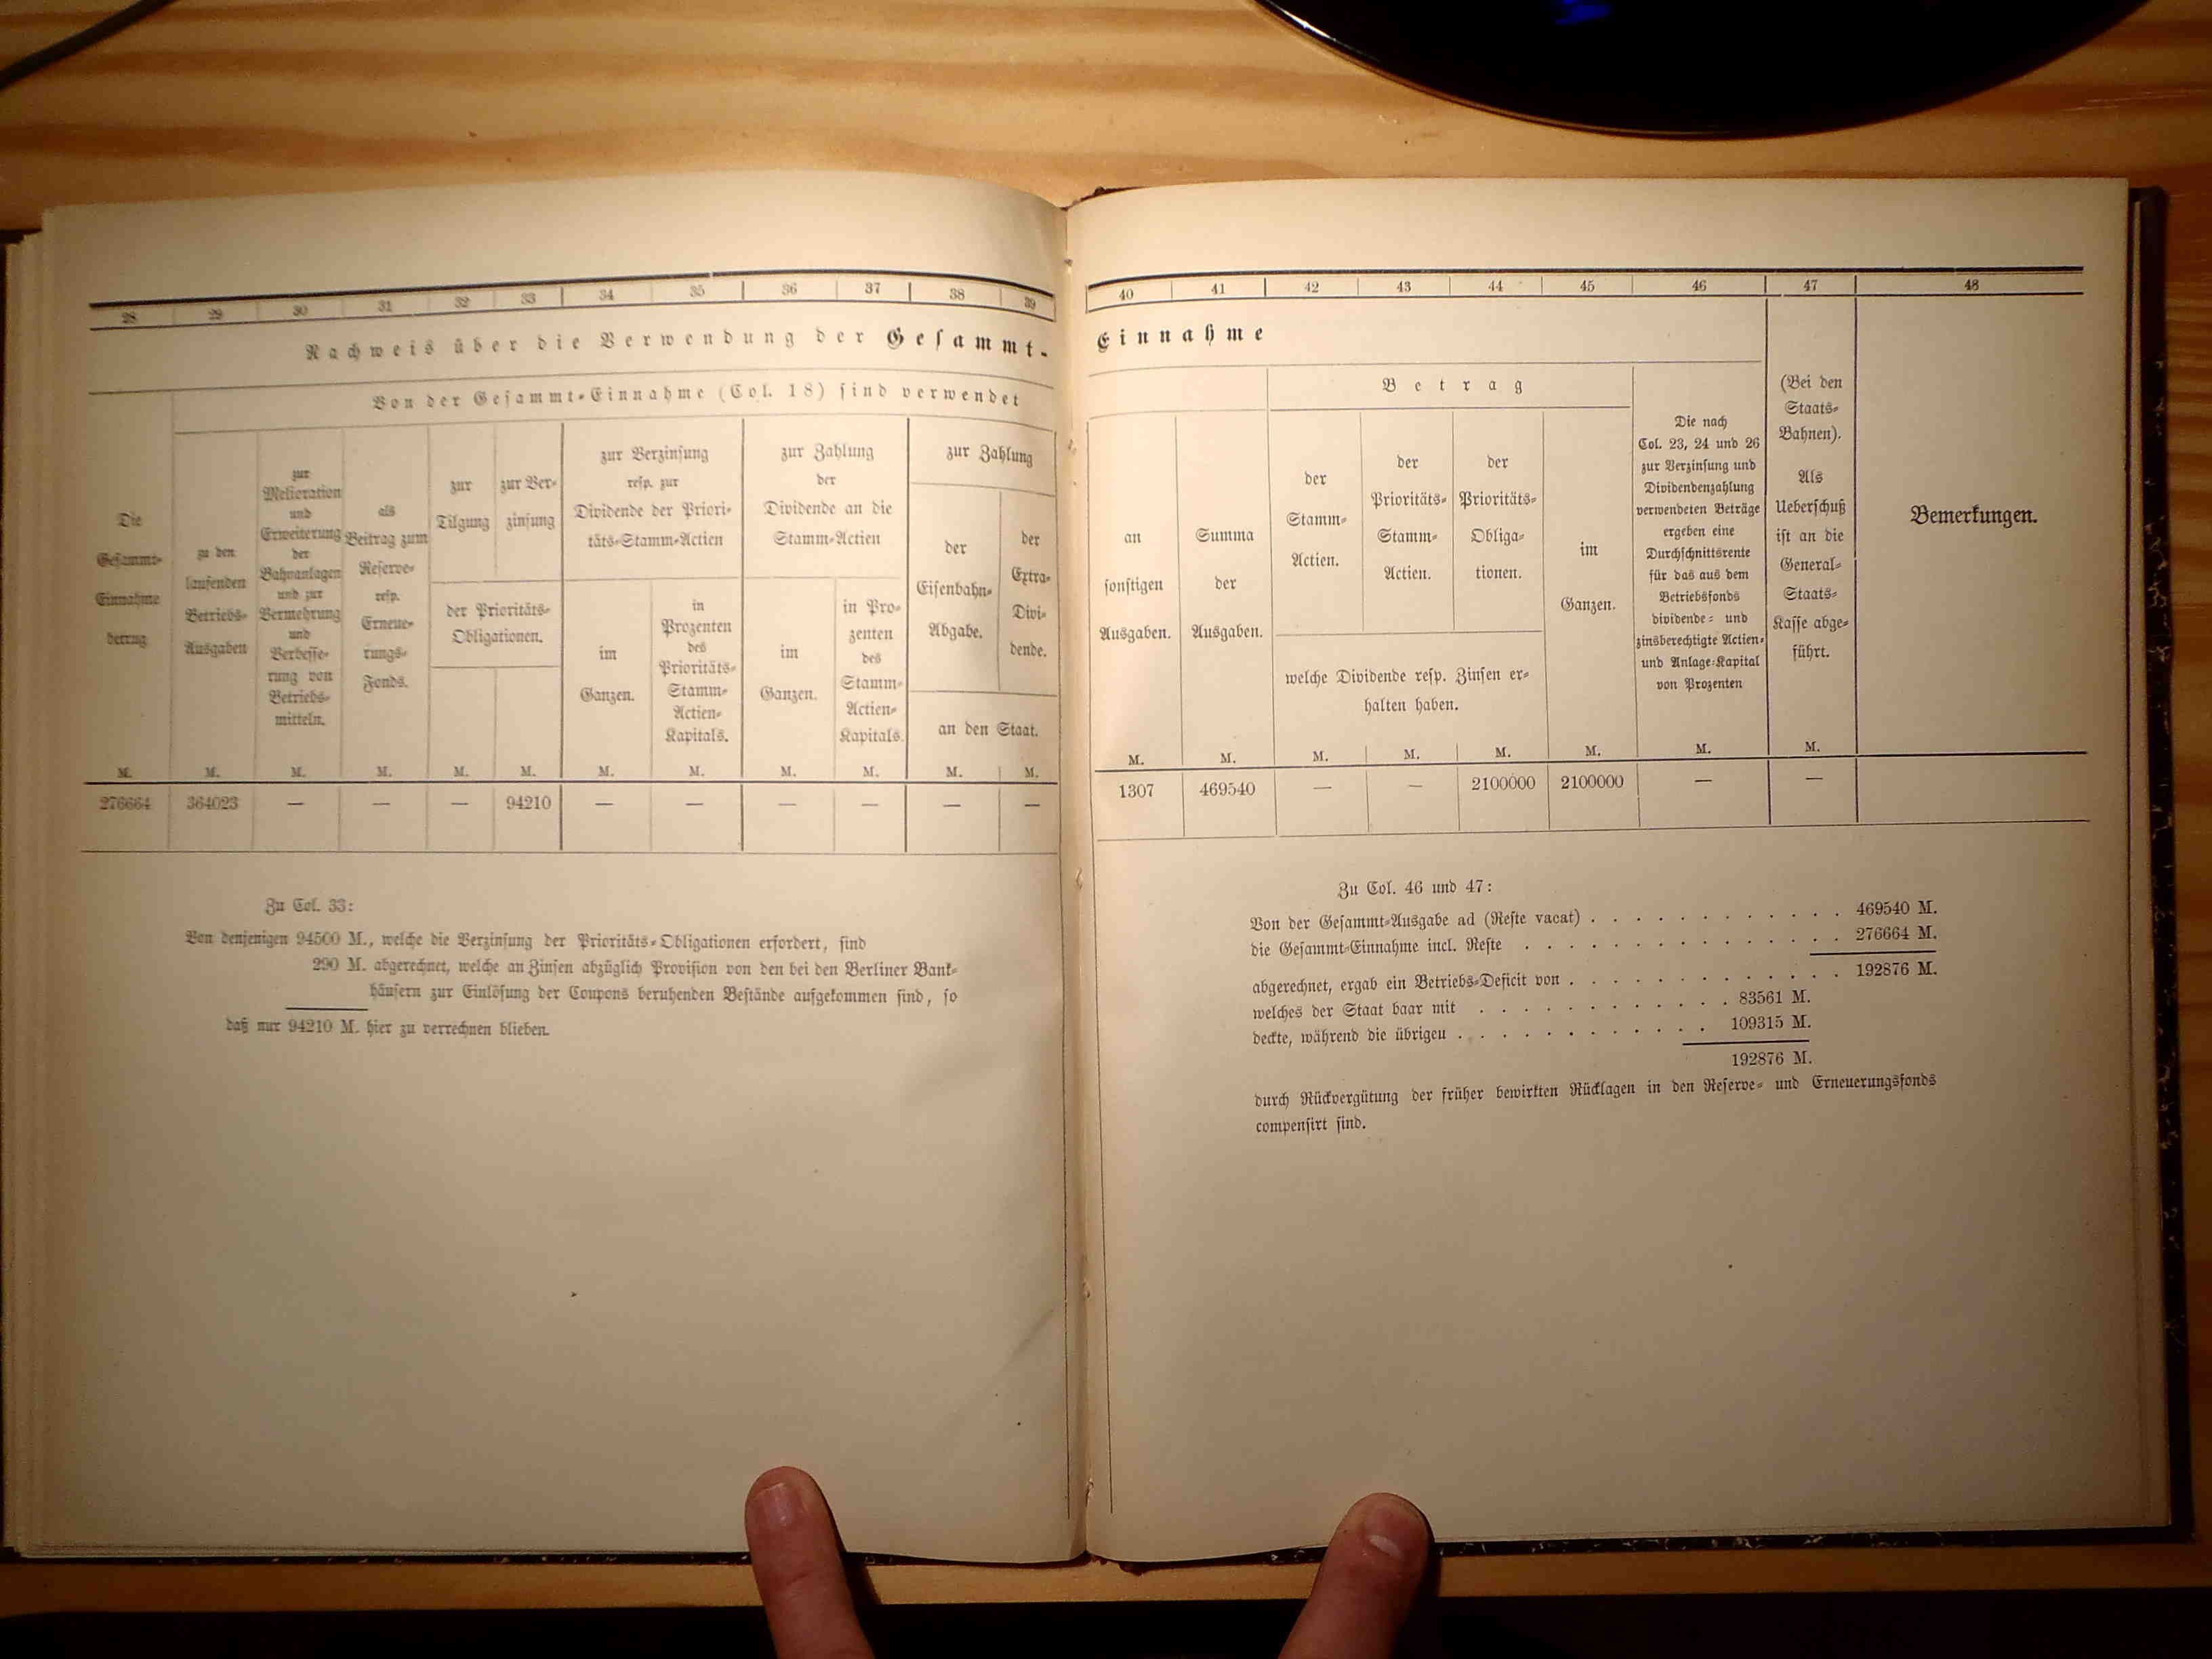 28 29 30 31 32 33 34 35 36 37 38 39
Nachweis über die Verwendung der Gesammt-
Von der Gesammt-Einnahme (Col. 18) sind verwendet
Die
Gesammt-
Einnahme
betrug
M.
zu den
laufenden
Betriebs-
Ausgaben
M.
zur
Melioration
und
Erweiterung
der
Bahnanlagen
und zur
Vermehrung
und
Verbesse-
rung von
Betriebs-
mitteln.
M.
als
Beitrag zum
Reserve-
resp.
Erneue-
rungs-
Fonds.
M.
zur
Tilgung
zur Ver-
zinsung
der Prioritäts-
Obligationen.
M. M.
zur Verzinsung
resp. zur
Dividende der Priori-
täts-Stamm-Actien
im
Ganzen.
M.
in
Prozenten
des
Prioritäts-
Stamm-
Actien-
Kapitals.
M.
zur Zahlung
der
Dividende an die
Stamm-Actien
im
Ganzen.
M.
in Pro-
zenten
des
Stamm-
Actien-
Kapitals.
M.
zur Zahlung
der
Eisenbahn-
Abgabe.
der
Extra-
Divi-
dende.
an den Staat.
M. M.
276664 364023 — — — 94210 — — — — — —
Zu Col. 33:
Von denjenigen 94500 M., welche die Verzinsung der Prioritäts-Obligationen erfordert, sind
290 M. abgerechnet, welche an Zinsen abzüglich Provision von den bei den Berliner Bank-
häusern zur Einlösung der Coupons beruhenden Bestände aufgekommen sind, so
daß nur 94210 M. hier zu verrechnen blieben.
40 41 42 43 44 45 46 47 48
Einnahme
an
sonstigen
Ausgaben.
M.
Summa
der
Ausgaben.
M.
Betrag
der
Stamm-
Actien.
der
Prioritäts-
Stamm-
Actien.
der
Prioritäts-
Obliga-
tionen.
welche Dividende resp. Zinsen er-
halten haben.
M. M. M.
im
Ganzen.
M.
Die nach
Col. 23, 24 und 26
zur Verzinsung und
Dividendenzahlung
verwendeten Beträge
ergeben eine
Durchschnittsrente
für das aus dem
Betriebsfonds
dividende- und
zinsberechtigte Actien-
und Anlage-Kapital
von Prozenten
M.
(Bei den
Staats-
Bahnen).
Als
Ueberschuß
ist an die
General-
Staats-
Kasse abge-
führt.
M.
Bemerkungen.
1307 469540 — — 2100000 2100000 — —
Zu Col. 46 und 47:
Von der Gesammt-Ausgabe ad (Reste vacat) . . . . . . . . . . . . 469540 M.
die Gesammt-Einnahme incl. Reste . . . . . . . . . . . . . . . 276664 M.
abgerechnet, ergab ein Betriebs-Deficit von . . . . . . . . . . . . . 192876 M.
welches der Staat baar mit . . . . . . . . . . . 83561 M.
deckte, während die übrigeu . . . . . . . . . . . 109315 M.
192876 M.
durch Rückvergütung der früher bewirkten Rücklagen in den Reserve- und Erneuerungsfonds
compensirt sind.